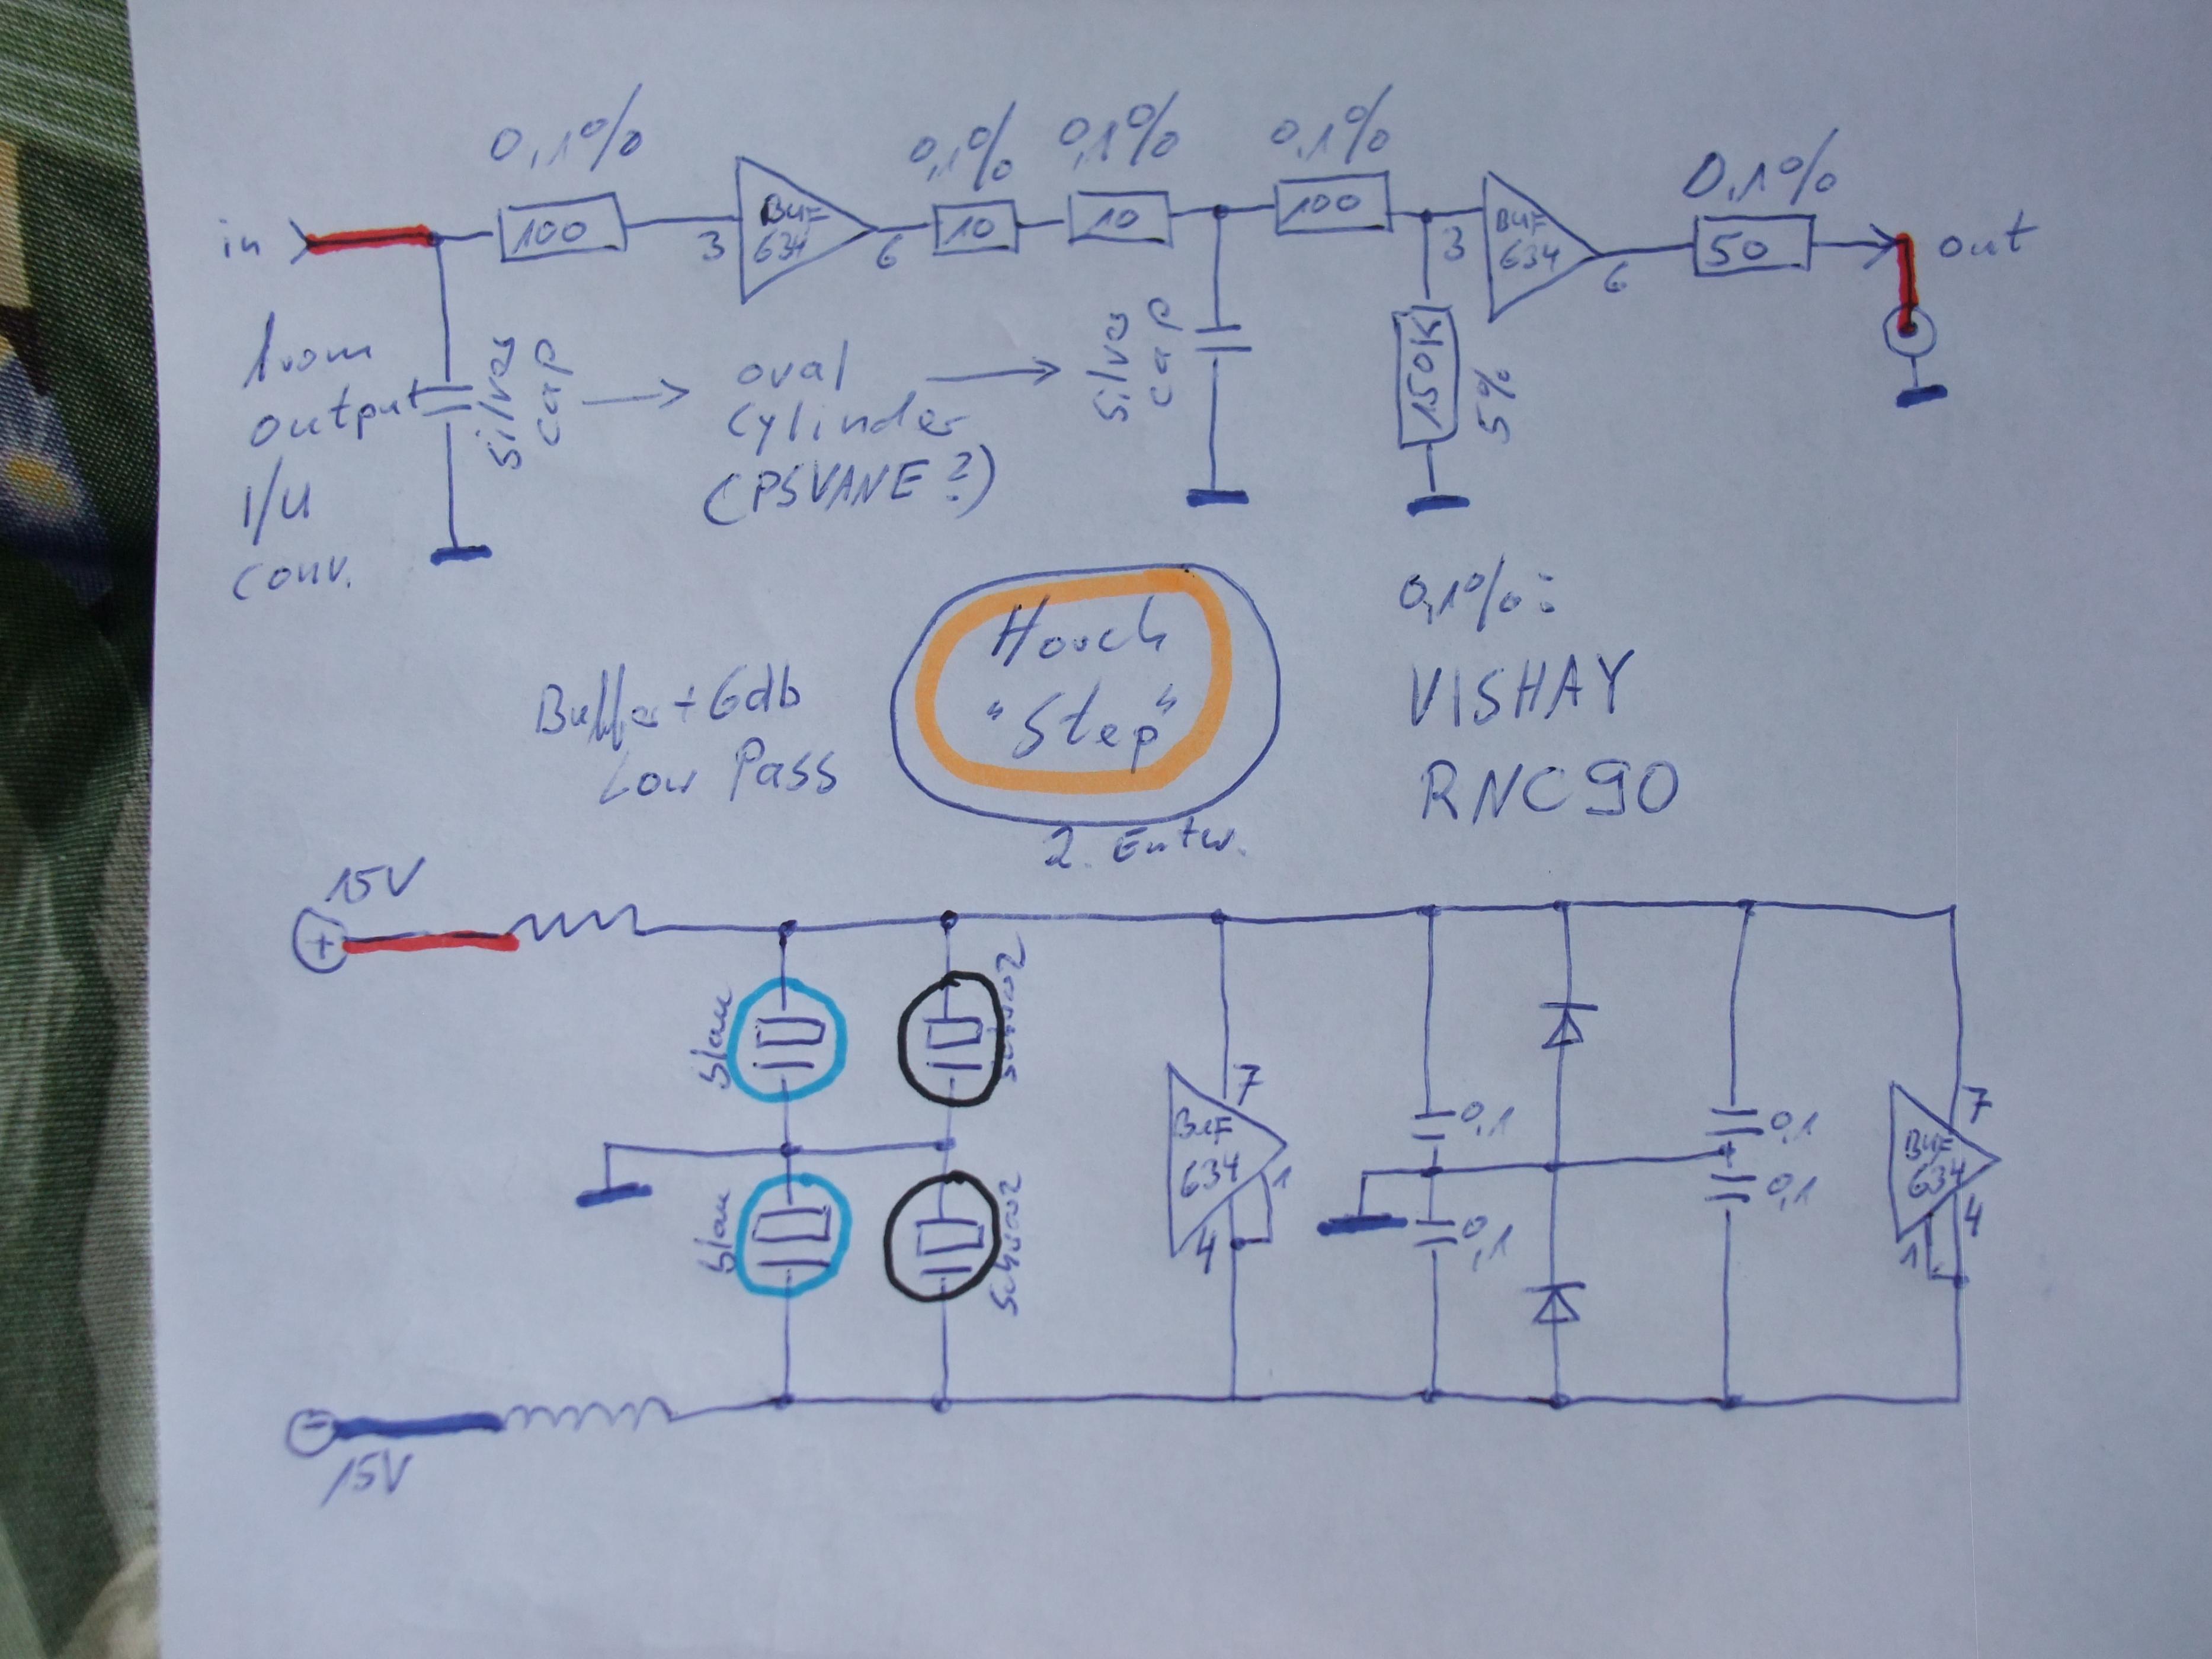 0,1%
0,1%
0,1%
0,1%
0,1%
in
100
3
BUF
634
6
10
10
100
3
BUF
634
6
50
out
from
output
I/U
conv.
silver
cap
oval
cylinder
(PSVANE?)
silver
cap
150K
5%
Buffer + 6db
Low Pass
Horch
"Step"
2. Entw.
0,1%:
VISHAY
RNC90
15V
+
blau
schwarz
blau
schwarz
BUF
634
7
1
4
0,1
0,1
0,1
0,1
BUF
634
7
4
1
-
15V